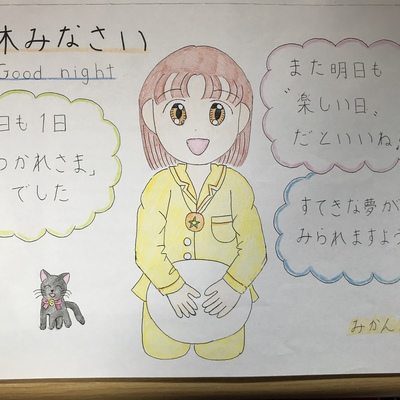 休みなさい
Good night
日も1日
つかれさま」
でした
また明日も
"楽しい日"
だといいね
すてきな夢が
みられますよう
みかん